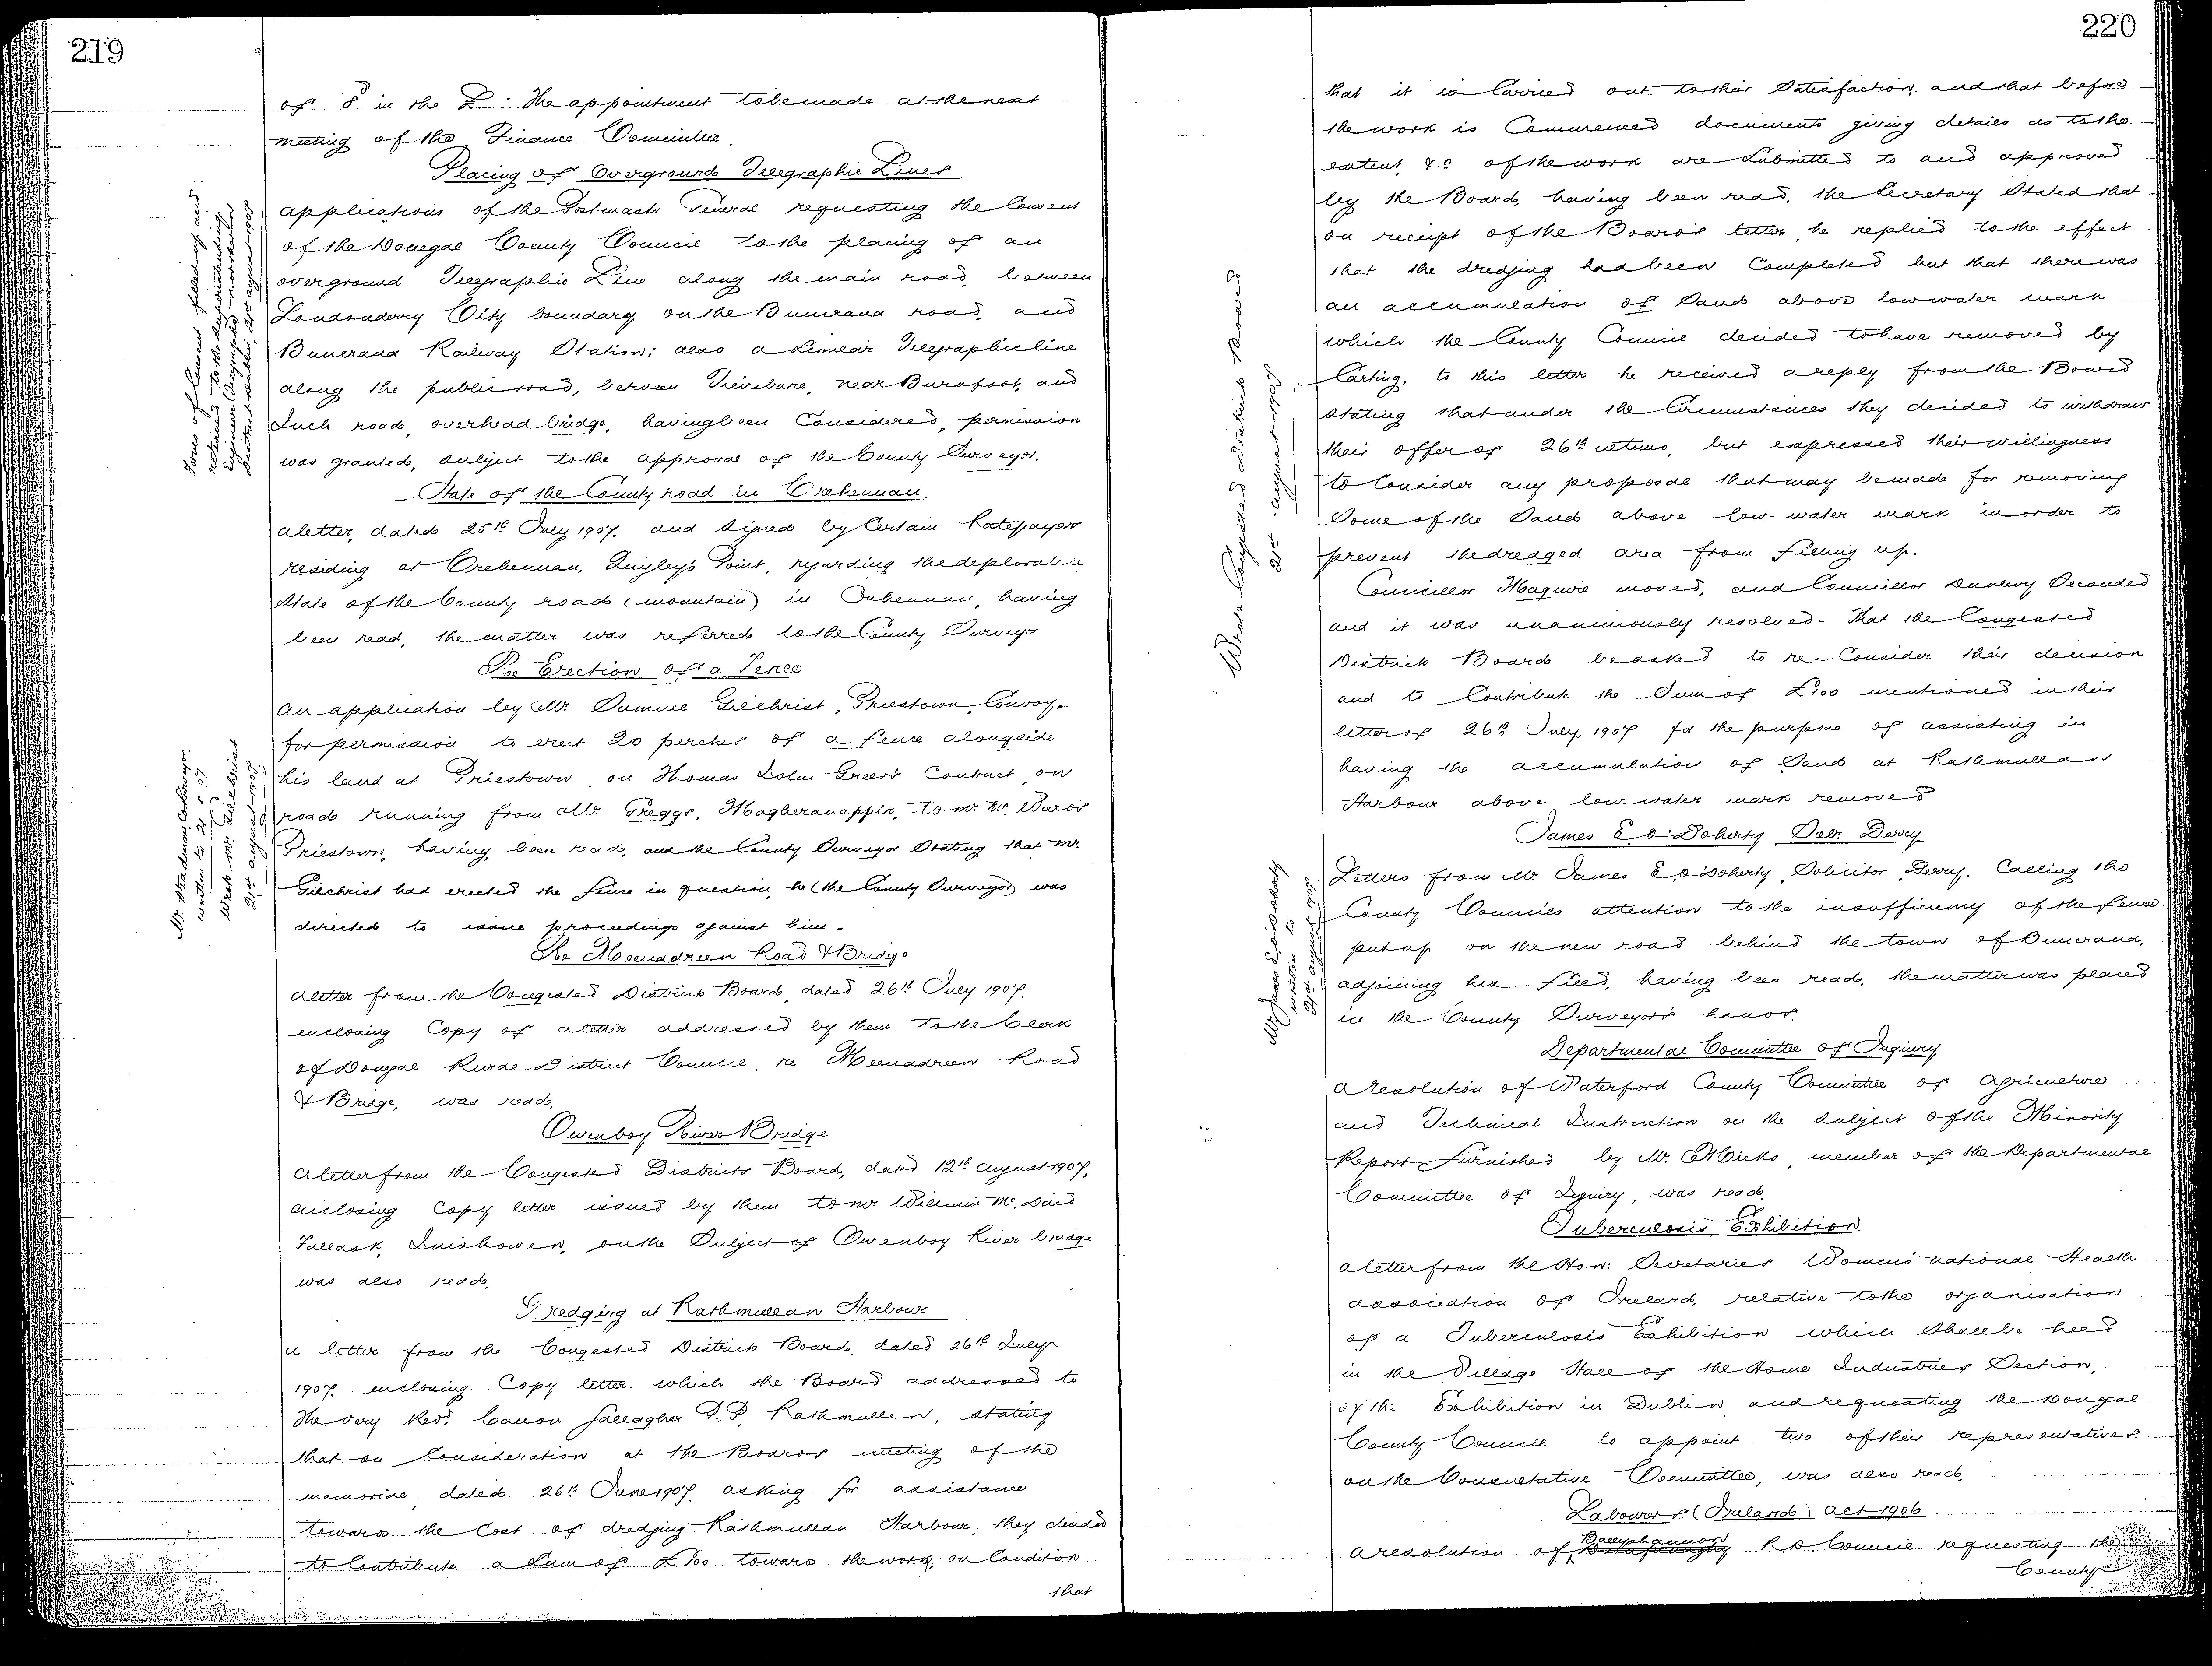 219
of 8d in the £. The appointment to be made at the next
meeting of the Finance Committee.
Placing of Overground Telegraphic Lines
Forms of Consent filled up and
returned to the Superintending
Engineer
21st August 1907
applications of the Postmaster General requesting the Consent
of the Donegal County Council to the placing of an
overground Telegraphic Line along the main road, between
Londonderry City boundary on the Buncrana road, and
Buncrana Railway Station; also a similar Telegraphic line
along the public road, between Trievebane, near Burnfoot, and
Inch road, overhead bridge, having been Considered, permission
was granted, subject to the approval of the County Surveyor.
State of the County road in Crehennan.
a letter, dated 25th July 1907. and signed by Certain Ratepayers
residing at Crehennan, Quigley's Point, regarding the deplorable
state of the County road (mountain) in Crehennan, having
been read, the matter was referred to the County Surveyor
Re Erection of a Fence
written to 21.8.07
Wrote Mr. Gilchrist
21st August 1907
An application by Mr. Samuel Gilchrist, Priestown, Convoy,
for permission to erect 20 perches of a fence alongside
his land at Priestown, on Thomas John Greer's Contract, on
road running from Mr. Gregg's, Magheranappin, to Mr. Mc. Ward's
Priestown, having been read, and the County Surveyor Stating that Mr.
Gilchrist had erected the fence in question, he (the County Surveyor) was
directed to issue proceedings against him.
The Meenadreen Road & Bridge
a letter from the Congested Districts Board, dated 26th July 1907.
enclosing Copy of a letter addressed by them to the Clerk
of Donegal Rural District Council, re Meenadreen Road
& Bridge, was read.
Owenboy River Bridge
a letter from the Congested Districts Board, dated 12th August 1907,
enclosing Copy letter issued by them to Mr. William Mc. Daid
Tullask, Inishowen, on the Subject of Owenboy River bridge
was also read.
Dredging at Rathmullan Harbour
a letter from the Congested Districts Board, dated 26th July
1907. enclosing Copy letter which the Board addressed to
The Very Revd. Canon Gallagher P.P. Rathmullen, stating
that on Consideration at the Boards meeting of the
memorial, dated 26th June 1907, asking for assistance
toward the Cost of dredging Rathmullan Harbour, they decided
to Contribute a sum of £100 toward the work, on Condition
that
220
that it is Carried out to their Satisfaction, and that before
the work is Commenced documents giving details as to the
extent, &c of the work are submitted to and approved
by the Board, having been read, the Secretary Stated that
on receipt of the Board's letter, he replied to the effect
that the dredging had been Completed but that there was
an accumulation of Sand above low water mark
which the County Council decided to have removed by
Carting, to this letter he received a reply from the Board
stating that under the Circumstances they decided to withdraw
their offer of 26th ultimo, but expressed their willingness
to Consider any proposal that may be made for removing
Some of the Sand above low-water mark in order to
prevent the dredged area from filling up.
Wrote Congested Districts Board
21st August 1907
Councillor Maguire moved, and Councillor Dunlevy Seconded
and it was unanimously resolved - That the Congested
Districts Board be asked to re-Consider their decision
and to Contribute the Sum of £100 mentioned in their
letter of 26th July 1907 for the purpose of assisting in
having the accumulation of Sand at Rathmullan
Harbour above low-water mark removed
James E O'Doherty Solr. Derry
Mr James E. O'Doherty
written to
21st August 1907.
Letters from Mr. James E. O'Doherty, Solicitor, Derry. Calling the
County Councils attention to the insufficiency of the fence
put up on the new road behind the town of Buncrana,
adjoining his field, having been read, the matter was placed
in the County Surveyor's hands.
Departmental Committee of Inquiry
a resolution of Waterford County Committee of Agriculture
and Technical Instruction on the subject of the Minority
Report furnished by Mr. Micks, member of the Departmental
Committee of Inquiry, was read.
Tuberculosis Exhibition
a letter from the Hon: Secretaries Women's National Health
association of Ireland, relative to the organisation
of a Tuberculosis Exhibition which shall be held
in the Village Hall of the Home Industries Section,
of the Exhibition in Dublin, and requesting the Donegal
County Council to appoint two of their representatives
on the Consultative Committee, was also read.
Labourers (Ireland) Act 1906
a resolution of Ballyshannon R D Council requesting the
County